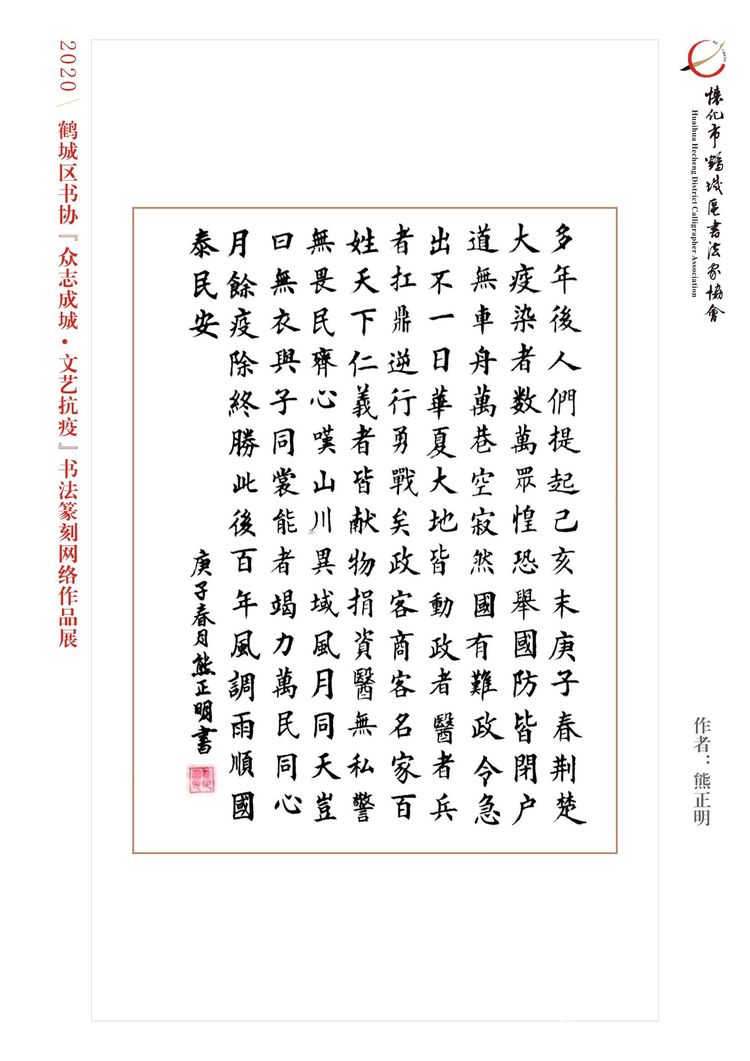 懷化市鶴城區書法家協會
Huaihua Hecheng District Calligrapher Association
多年後人們提起己亥末庚子春荆楚
大疫染者数萬眾惶恐舉國防皆閉户
道無車舟萬巷空寂然國有難政令急
出不一日華夏大地皆動政者醫者兵
者扛鼎逆行勇戰矣政客商客名家百
姓天下仁義者皆献物捐資醫無私警
無畏民齊心嘆山川異域風月同天豈
曰無衣與子同裳能者竭力萬民同心
月餘疫除終勝此後百年風調雨順國
泰民安
庚子春月熊正明書
作者：熊正明
2020 \ 鹤城区书协『众志成城·文艺抗疫』书法篆刻网络作品展